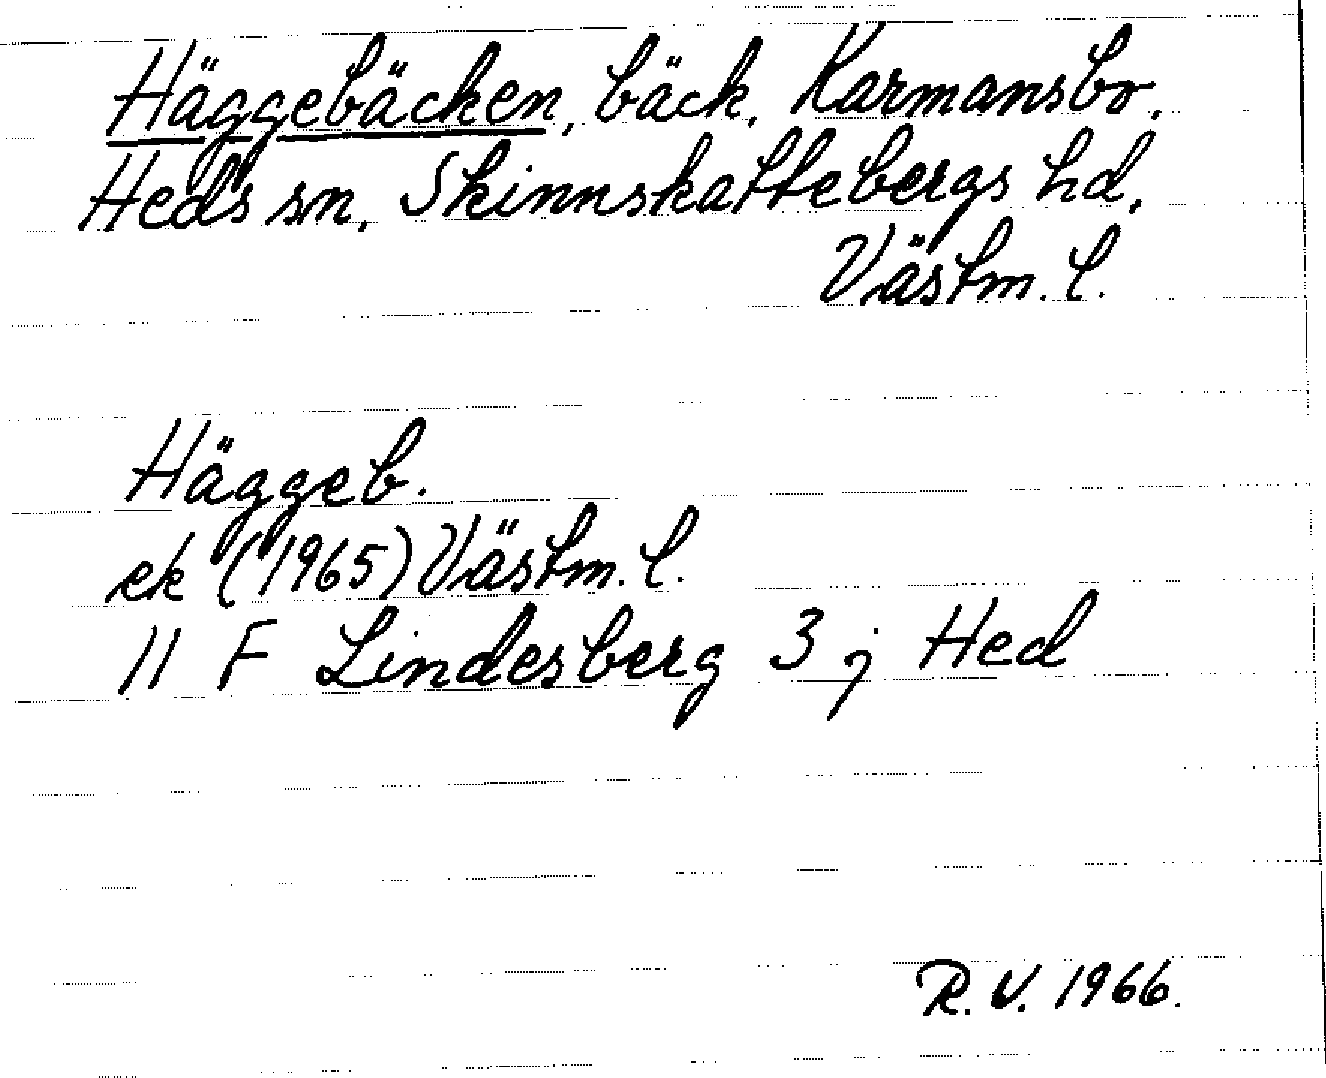 Häggebäcken, bäck, Karmansbo,
Heds sn, Skinnskattebergs hd,
Västm. l.
Häggeb.
ek (1965) Västm. l.
11 F Lindesberg 3 j Hed
R. V. 1966.